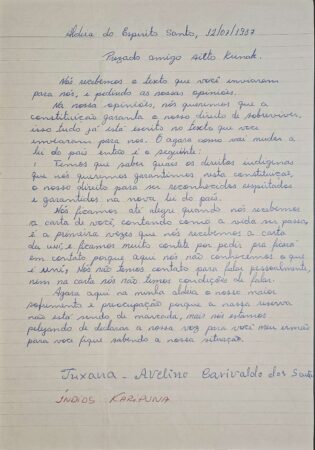 Aldeia do Espirito Santo, 12/07/1987
Prezado amigo Ailto Krenak.
Nós recebemos o texto que você enviaram
para nós, e pedindo as nossas opiniões.
Na nossa opiniões, nós queremos que a
constituição garanta o nosso direito de sobreviver,
isso tudo já está escrito no texto que voce
enviaram para nos. O agora como vai mudar a
lei do país então é o seguinte:
Temos que saber quais os direitos indígenas
que nós queremos garantimos nesta constituição,
o nosso direito para ser reconhecidos respeitados
e garantidos na nova lei do país.
Nós ficamos até alegre quando nós recebemos
a carta de você, contando como a vida ser passa,
é a primeira vezes que nós recebemos a carta
da uni, e ficamos muito contete por poder pra ficar
em contato porque aqui nós não conhecemos o que
é uni, Nós não temos contato para falar pessoalmente,
nem na carta nós não temos condições de falar.
Agora aqui na minha aldeia o nosse maior
sofrimento e preocupação porque a nossa reserva
não está sendo de marcada, mais nós estamos
pelejando de declarar a nossa voz para você meu irmão
para voce fique sabendo a nossa situação.
Tuxaua - Avelino Carivaldo dos Santos
ÍNDIOS KARIPUNA